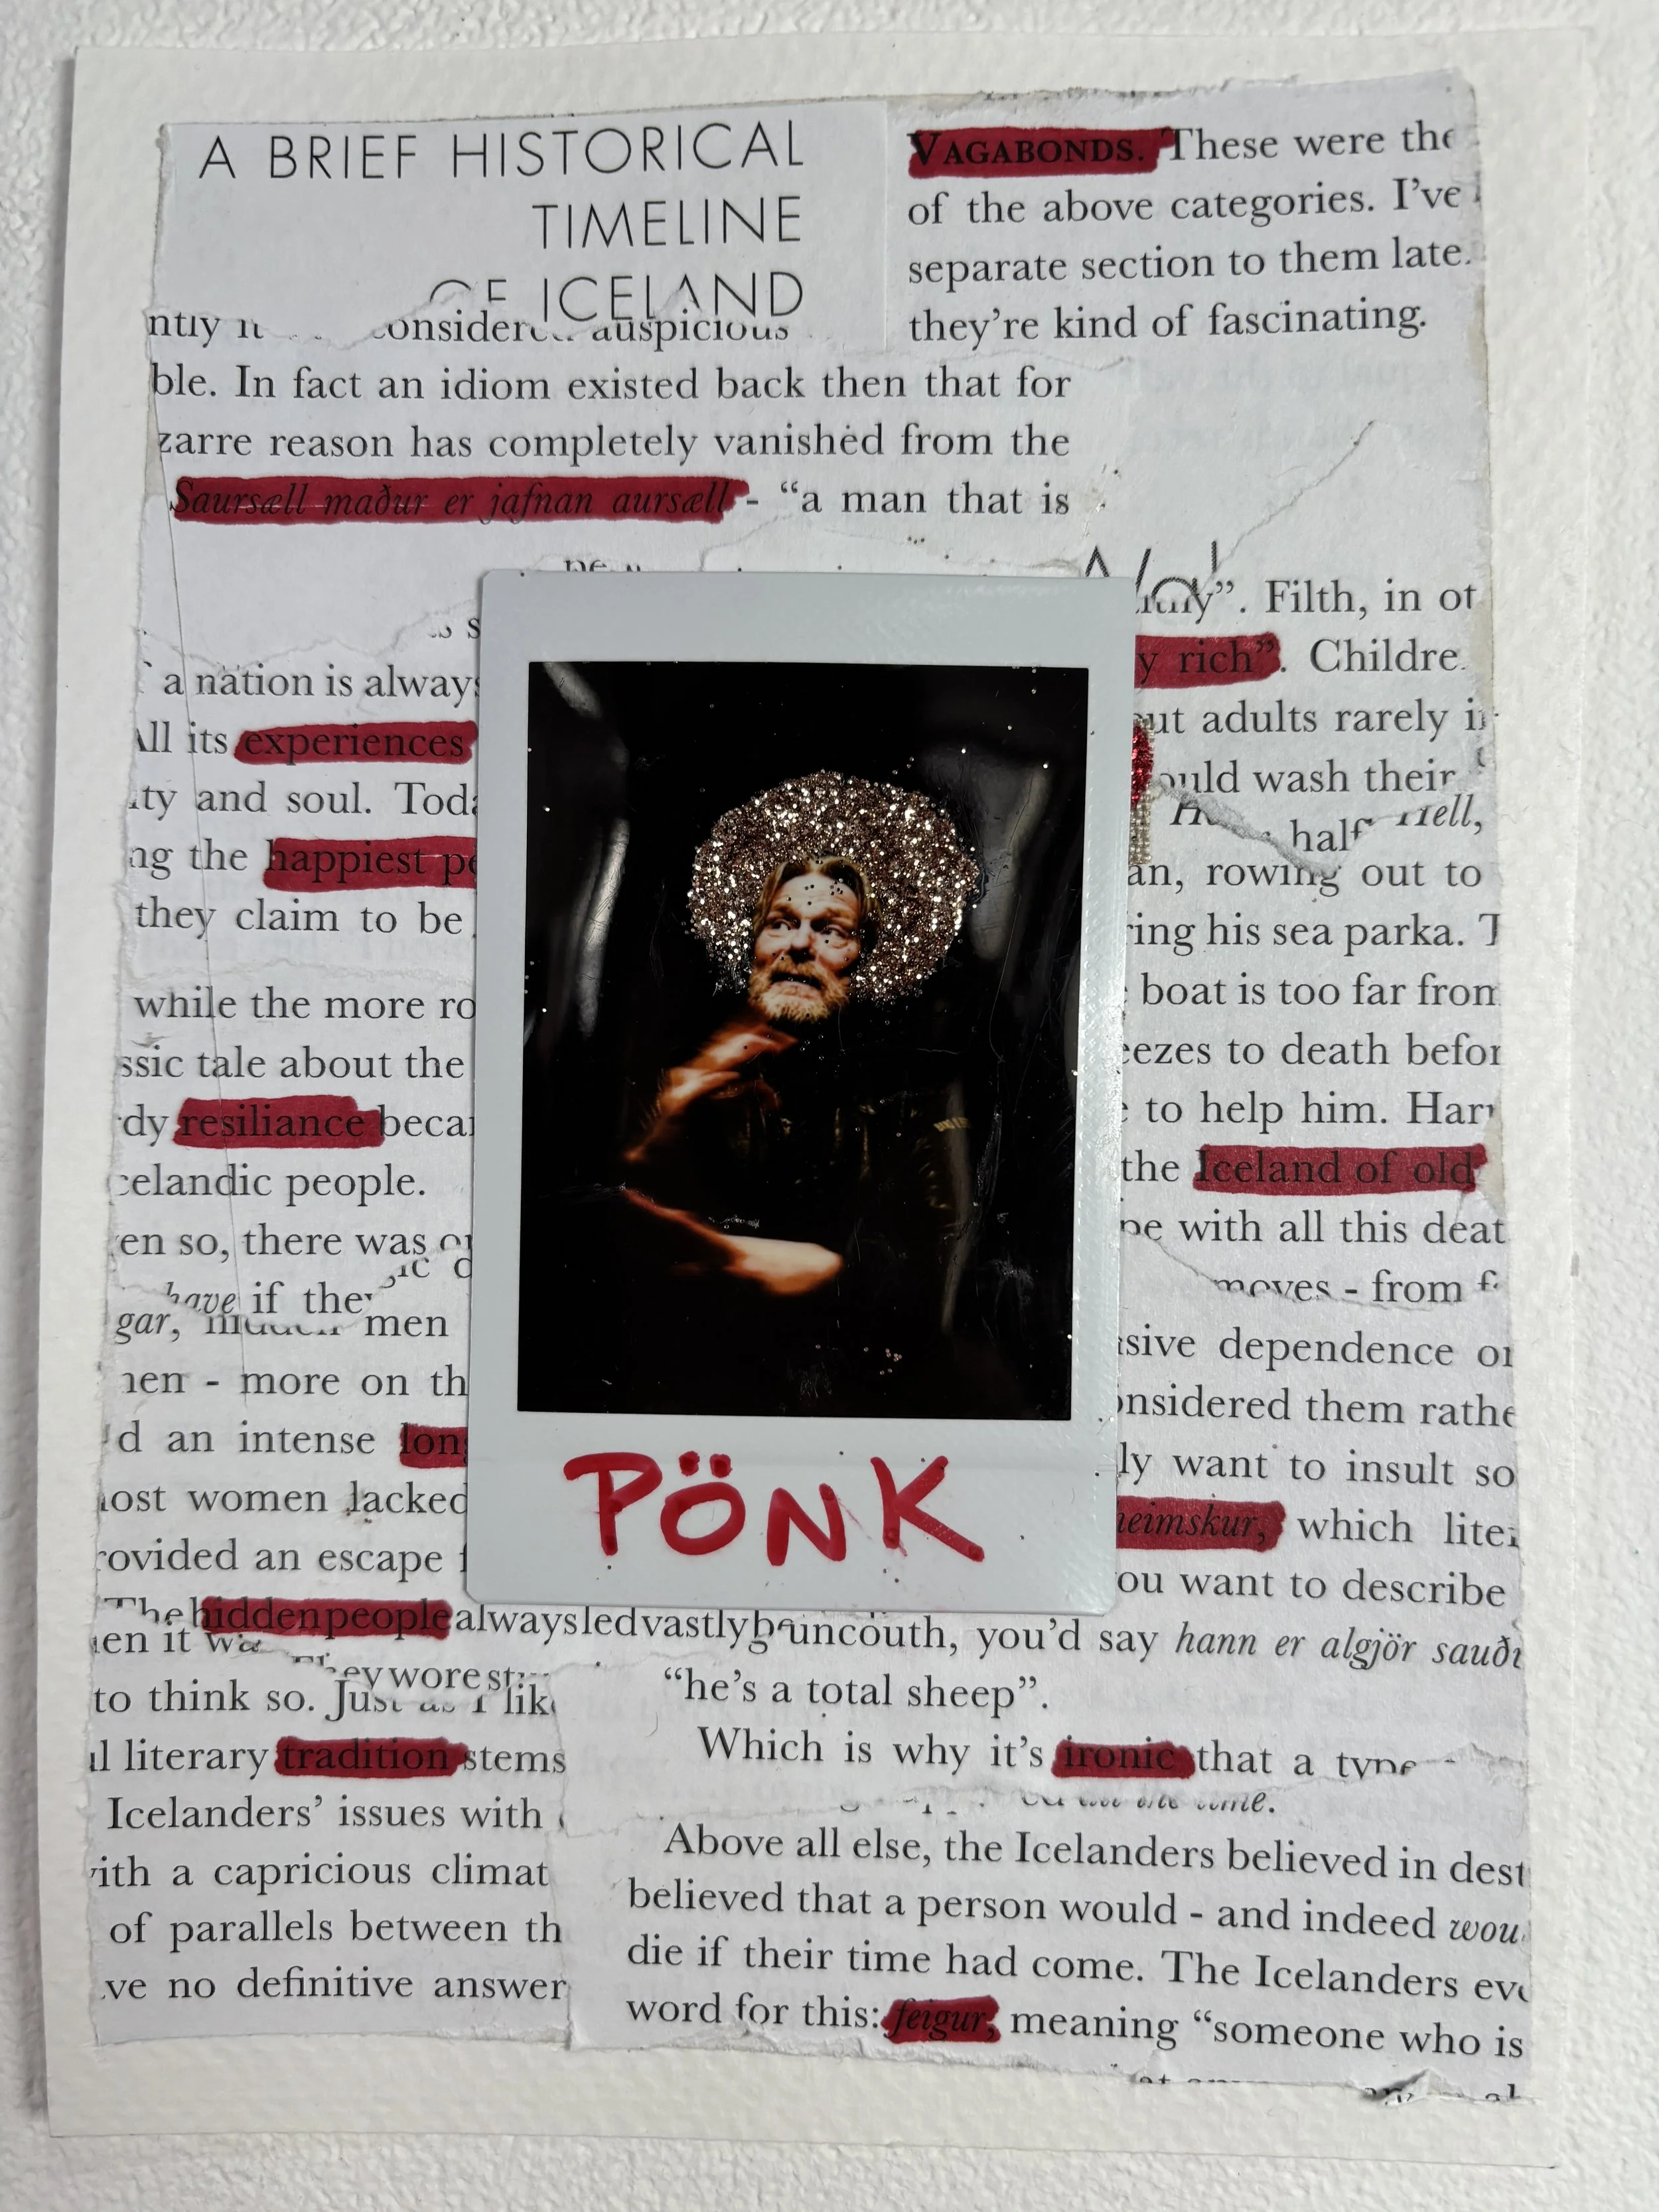 A BRIEF HISTORICAL
TIMELINE
OF ICELAND
VAGABONDS. These were the
of the above categories. I've
separate section to them late
they're kind of fascinating.
auspicious
ble. In fact an idiom existed back then that for
zarre reason has completely vanished from the
Saursæll maður er jafnan aursæll - "a man that is
a nation is always
All its experiences
ity and soul. Toda
ng the happiest pe
they claim to be
while the more ro
ssic tale about the
dy resiliance beca
celandic people.
en so, there was
have if they
gar, men
men - more on th
d an intense lon
most women lacked
rovided an escape f
The hidden people always led vastly
en it wa
They wore
to think so. Just as I lik
l literary tradition stems
Icelanders' issues with
ith a capricious climat
of parallels between th
ve no definitive answer
". Filth, in ot
y rich". Childre
ut adults rarely i
ould wash their
Hell,
half
an, rowing out to
ring his sea parka. T
boat is too far from
eezes to death befor
e to help him. Har
the Iceland of old
pe with all this deat
moves - from f
sive dependence or
onsidered them rathe
ly want to insult so
heimskur, which lite
ou want to describe
uncouth, you'd say hann er algjör sauð
"he's a total sheep".
Which is why it's ironic that a type
time.
Above all else, the Icelanders believed in dest
believed that a person would - and indeed wou
die if their time had come. The Icelanders eve
word for this: feigur, meaning "someone who is
PÖNK